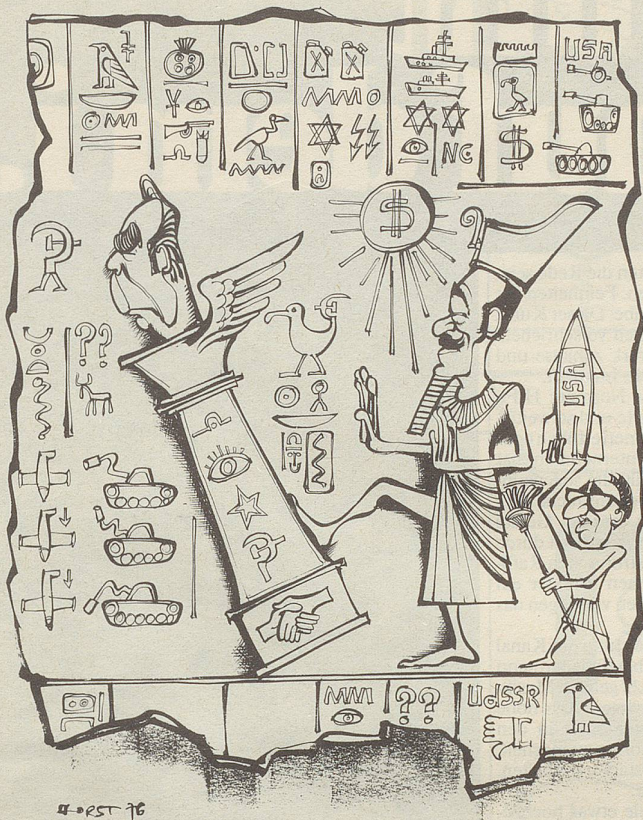 USA
¥
$
NC
$
??
USA
??
UdSSR
HORST 76